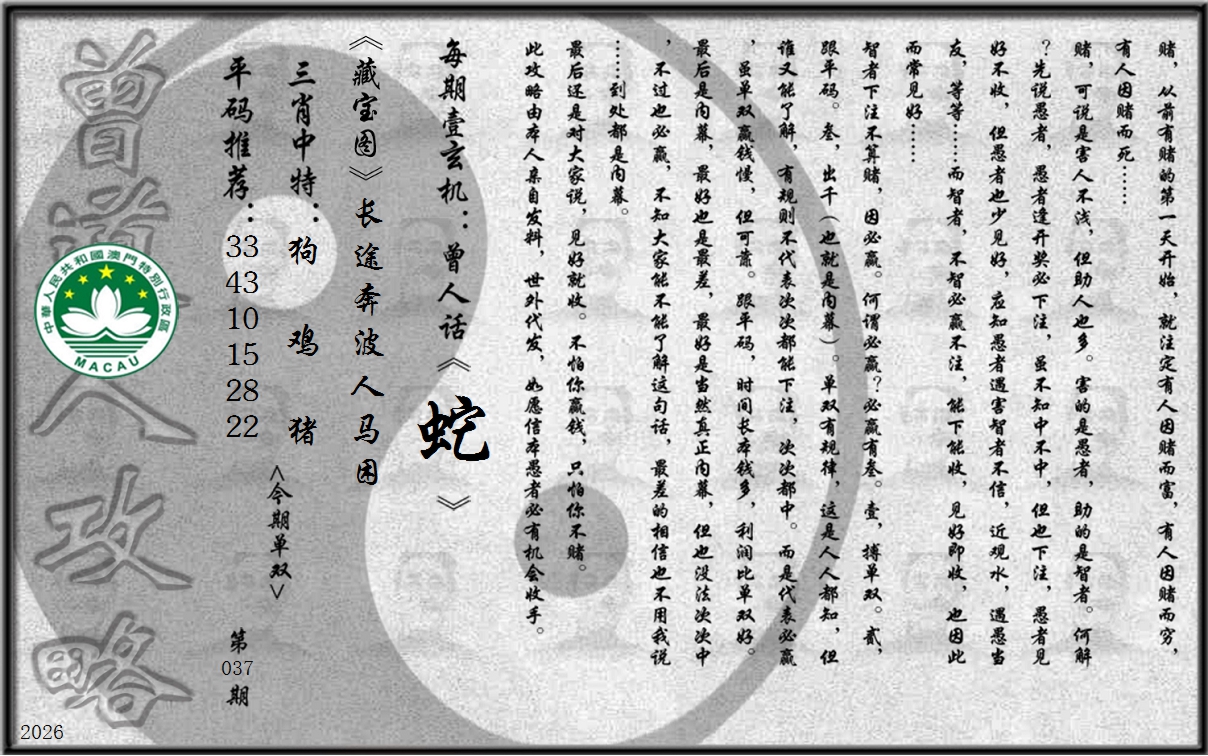 赌，从前有赌的第一天开始，就注定有人因赌而富，有人因赌而穷，
有人因赌而死……
赌，可说是害人不浅，但助人也多。害的是愚者，助的是智者。何解
？先说愚者，愚者逢开奖必下注，虽不知中不中，但也下注，愚者见
好不收，但愚者也少见好，应知愚者遇害智者不信，近观水，遇愚当
友，等等……而智者，不智必赢不注，能下能收，见好即收，也因此
而常见好……
智者下注不算赌，因必赢。何谓必赢？必赢有叁。壹，搏单双。贰，
跟平码。叁，出千（也就是内幕）。单双有规律，这是人人都知，但
谁又能了解，有规则不代表次次都能下注，次次都中。而是代表必赢
，虽单双赢钱慢，但可靠。跟平码，时间长本钱多，利润比单双好。
最后是内幕，最好也是最差，最好是当然真正内幕，但也没法次次中
，不过也必赢，不知大家能不能了解这句话，最差的相信也不用我说
……到处都是内幕。
最后还是对大家说，见好就收。不怕你赢钱，只怕你不赌。
此攻略由本人亲自发料，世外代发，如愿信本愚者必有机会收手。
每期壹玄机：曾人话《蛇》
《藏宝图》长途奔波人马困
三肖中特：狗 鸡 猪
<今期单双>
平码推荐：33 43 10 15 28 22
第037期
曾道人攻略
中華人民共和國澳門特別行政區
MACAU
2026